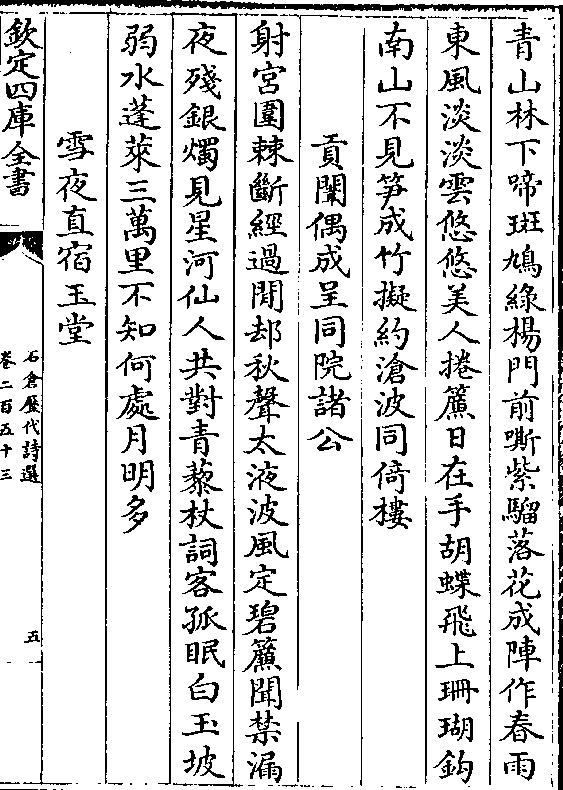 青山林下啼斑鳩綠楊門前嘶紫騮落花成陣作春雨
東風淡淡雲悠悠美人捲簾日在手胡蝶飛上珊瑚鈎
南山不見笋成竹擬約滄波同倚樓
貢闈偶成呈同院諸公
射宮圍棘斷經過聞却秋聲太液波風定碧簾聞禁漏
夜殘銀燭見星河仙人共對青藜杖詞客孤眠白玉坡
弱水蓬萊三萬里不知何處月明多
雪夜直宿玉堂
欽定四庫全書
石倉歷代詩選
卷二百五十三
五